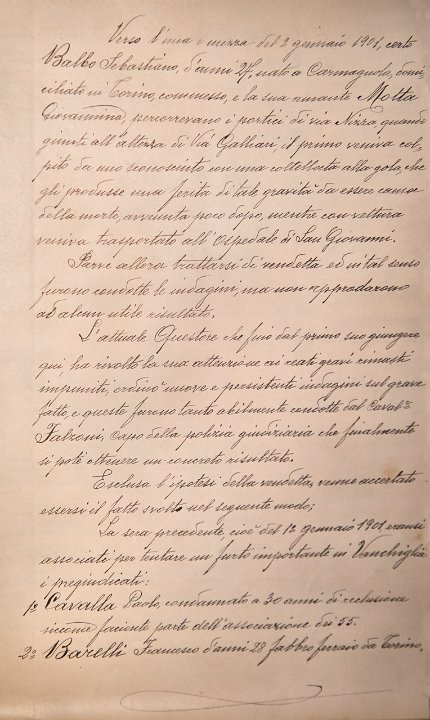 Verso l'una e mezza del 2 gennaio 1901, certo
Balbo Sebastiano, d'anni 27, nato a Carmagnola, domi-
ciliato in Torino, commesso, e la sua amante Motta
Giovannina, percorrevano i portici di via Nizza, quando
giunti all'altezza di Via Galliari, il primo veniva col-
pito da uno sconosciuto con una coltellata alla gola, che
gli produsse una ferita di tale gravità da essere causa
della morte, avvenuta poco dopo, mentre con vettura
veniva trasportato all'Ospedale di San Giovanni.
Parve allora trattarsi di vendetta ed in tal senso
furono condotte le indagini, ma non approdarono
ad alcun utile risultato.
L'attuale Questore che fin dal primo suo giungere
qui, ha rivolto la sua attenzione ai reati gravi rimasti
impuniti, ordinò nuove e persistenti indagini sul grave
fatto, e queste furono tanto abilmente condotte dal Caval.re
Falzoni, Capo della polizia giudiziaria che finalmente
si potè ottenere un concreto risultato.
Esclusa l'ipotesi della vendetta, venne accertato
essersi il fatto svolto nel seguente modo:
La sera precedente, cioè del 1º gennaio 1901 eransi
associati per tentare un furto importante in Vanchiglia
i pregiudicati:
1º Cavalla Paolo, condannato a 30 anni di reclusione
siccome faciente parte dell'associazione dei 55.
2º Barelli Francesco d'anni 28 fabbro ferraio da Torino.